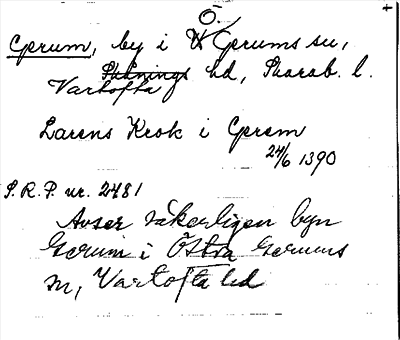 Ö.
Gerum, by i V Gerums sn,
Skånings hd, Skarab. l.
Vartofta
Larens Krok i Gerem
24/6 1390
S.R.P. nr. 2481
Avser säkerligen byn
Gerum i Östra Gerums
sn, Vartofta hd